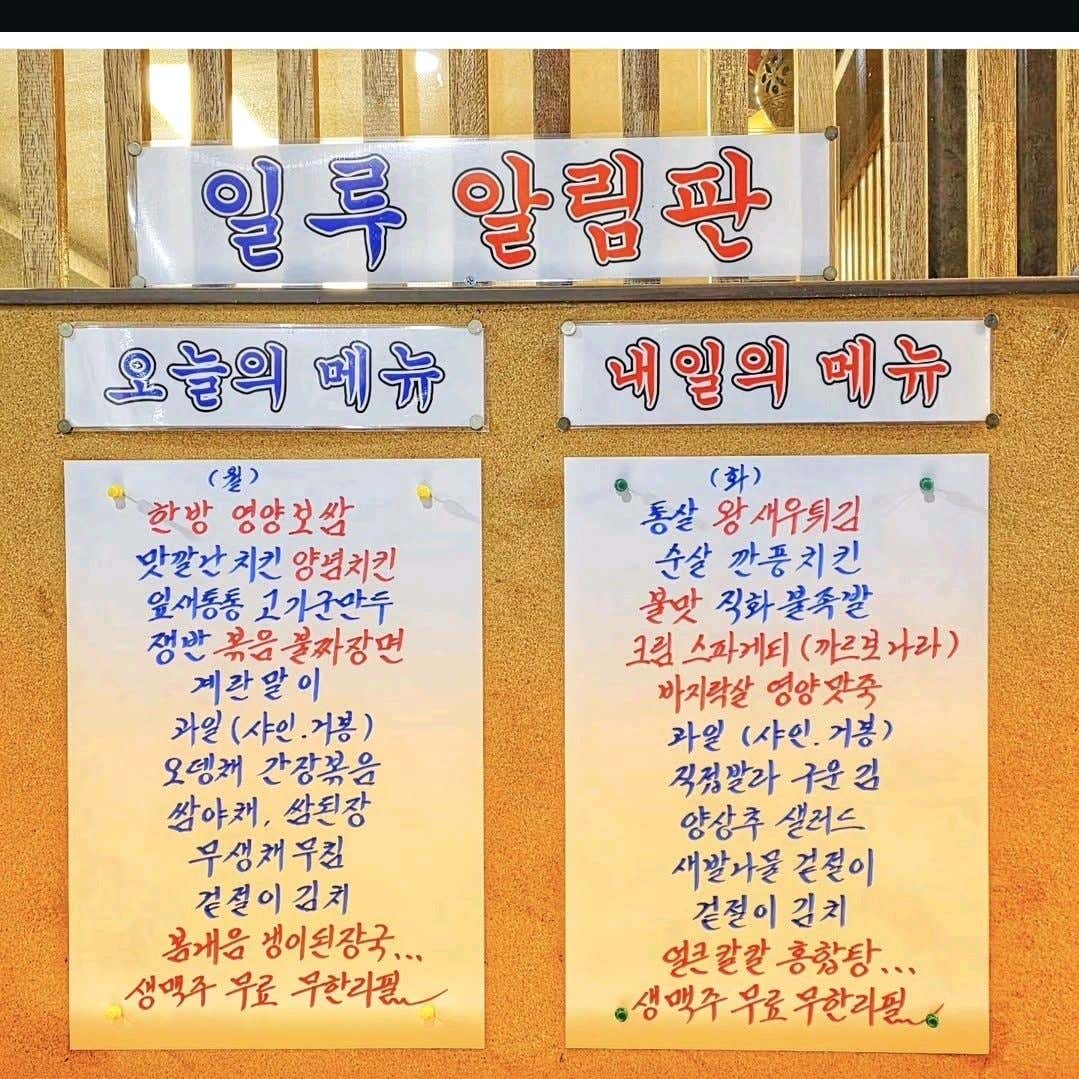 일루 알림판
오늘의 메뉴
(월)
한방 영양보쌈
맛깔난치킨 양념치킨
잎새통통 고기군만두
쟁반 볶음불짜장면
계란말이
과일(샤인.거봉)
오뎅채 간장볶음
쌈야채, 쌈된장
무생채무침
겉절이김치
봄내음 냉이된장국...
생맥주 무료 무한리필
내일의 메뉴
(화)
통살 왕새우튀김
순살 깐풍치킨
불맛 직화불족발
크림 스파게티(까르보나라)
바지락살 영양맛죽
과일 (샤인.거봉)
직접발라 구운김
양상추 샐러드
새발나물 겉절이
겉절이김치
얼큰칼칼 홍합탕...
생맥주 무료 무한리필